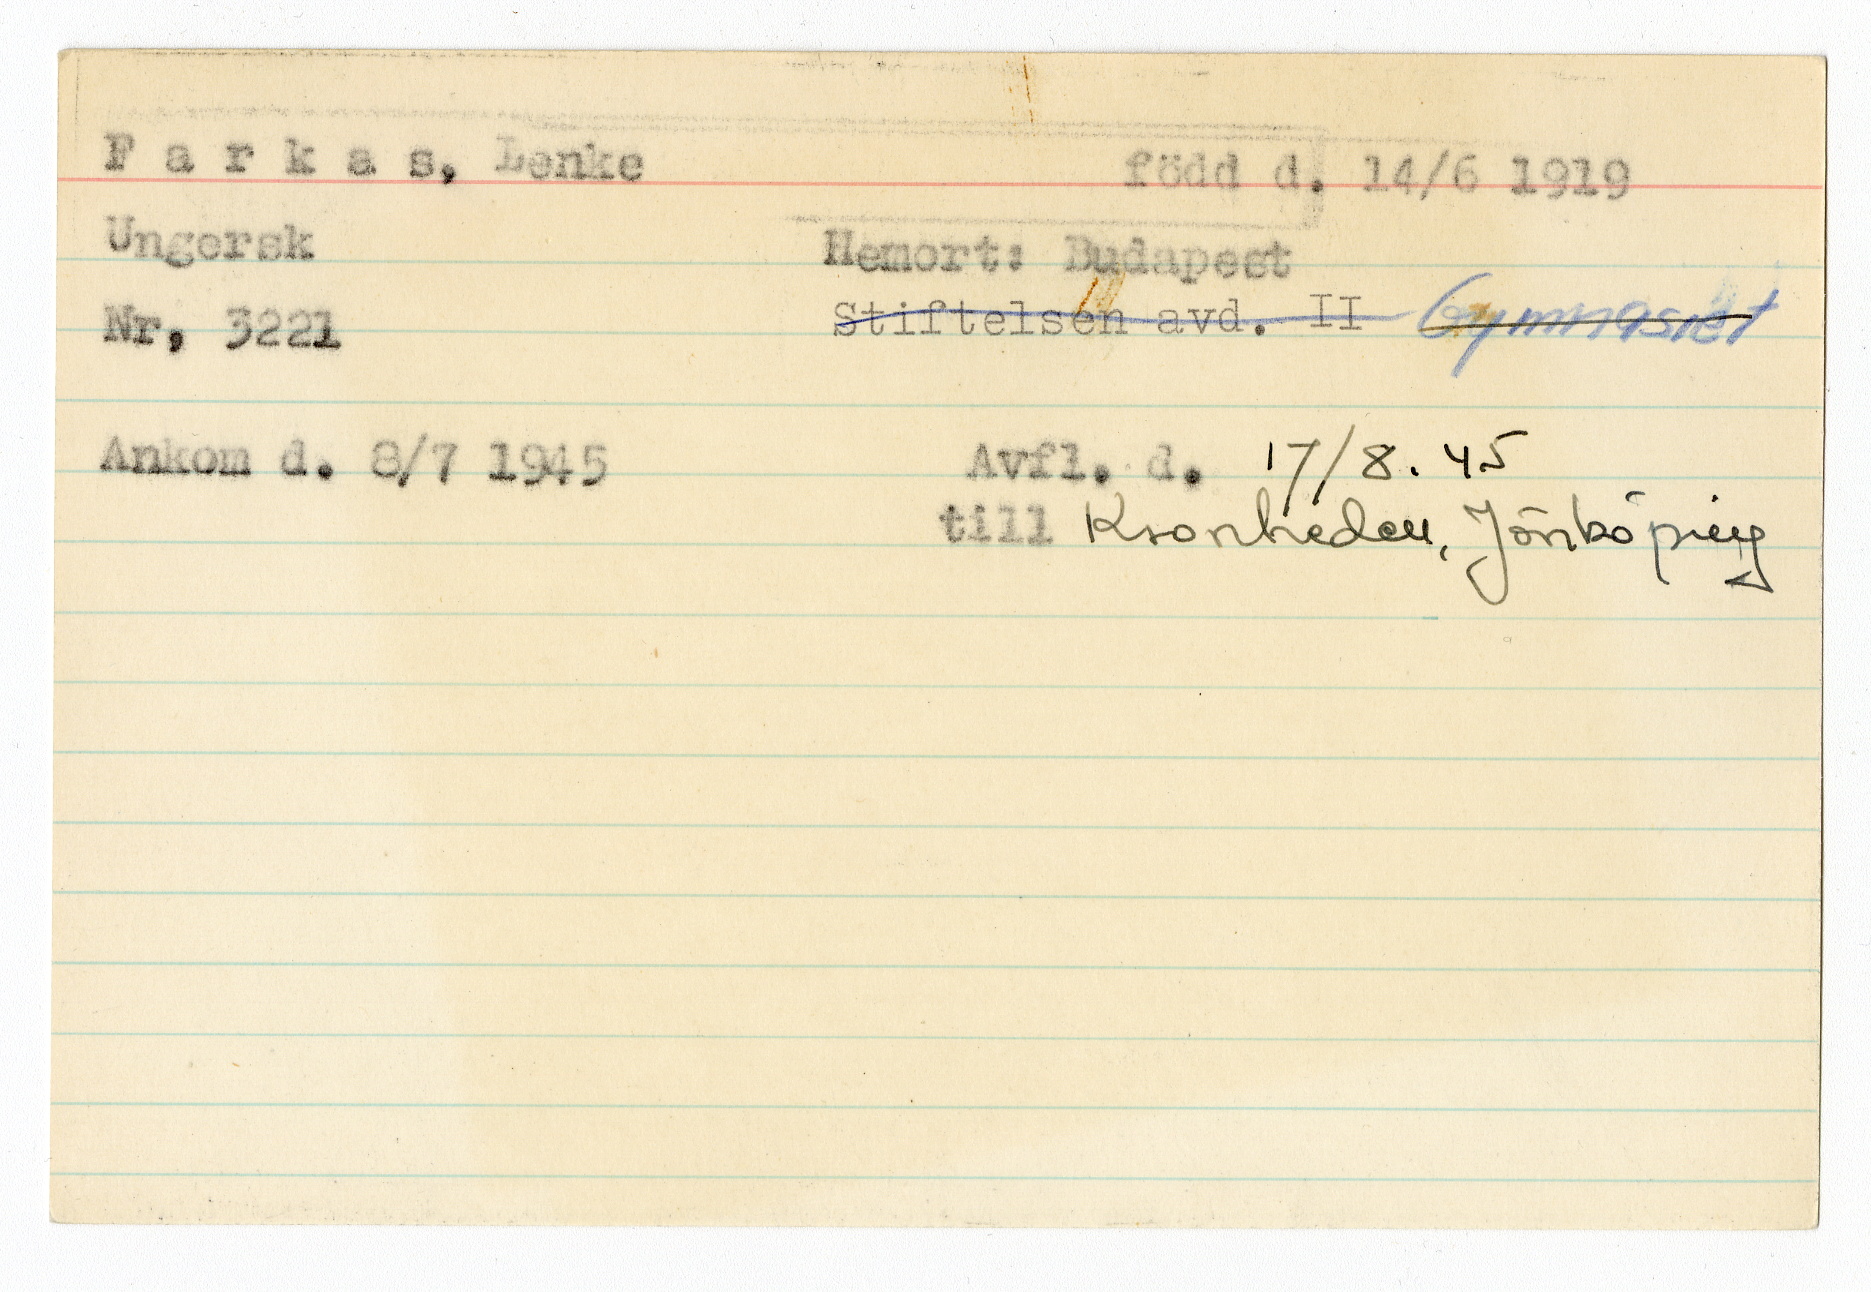 F a r k a s, Lenke född d. 14/6 1919
Ungersk Hemort: Budapest
Nr, 3221 Stiftelsen avd. II Gymnasiet
Ankom d. 8/7 1945 Avfl. d. 17/8. 45
till Kronheden, Jönköping